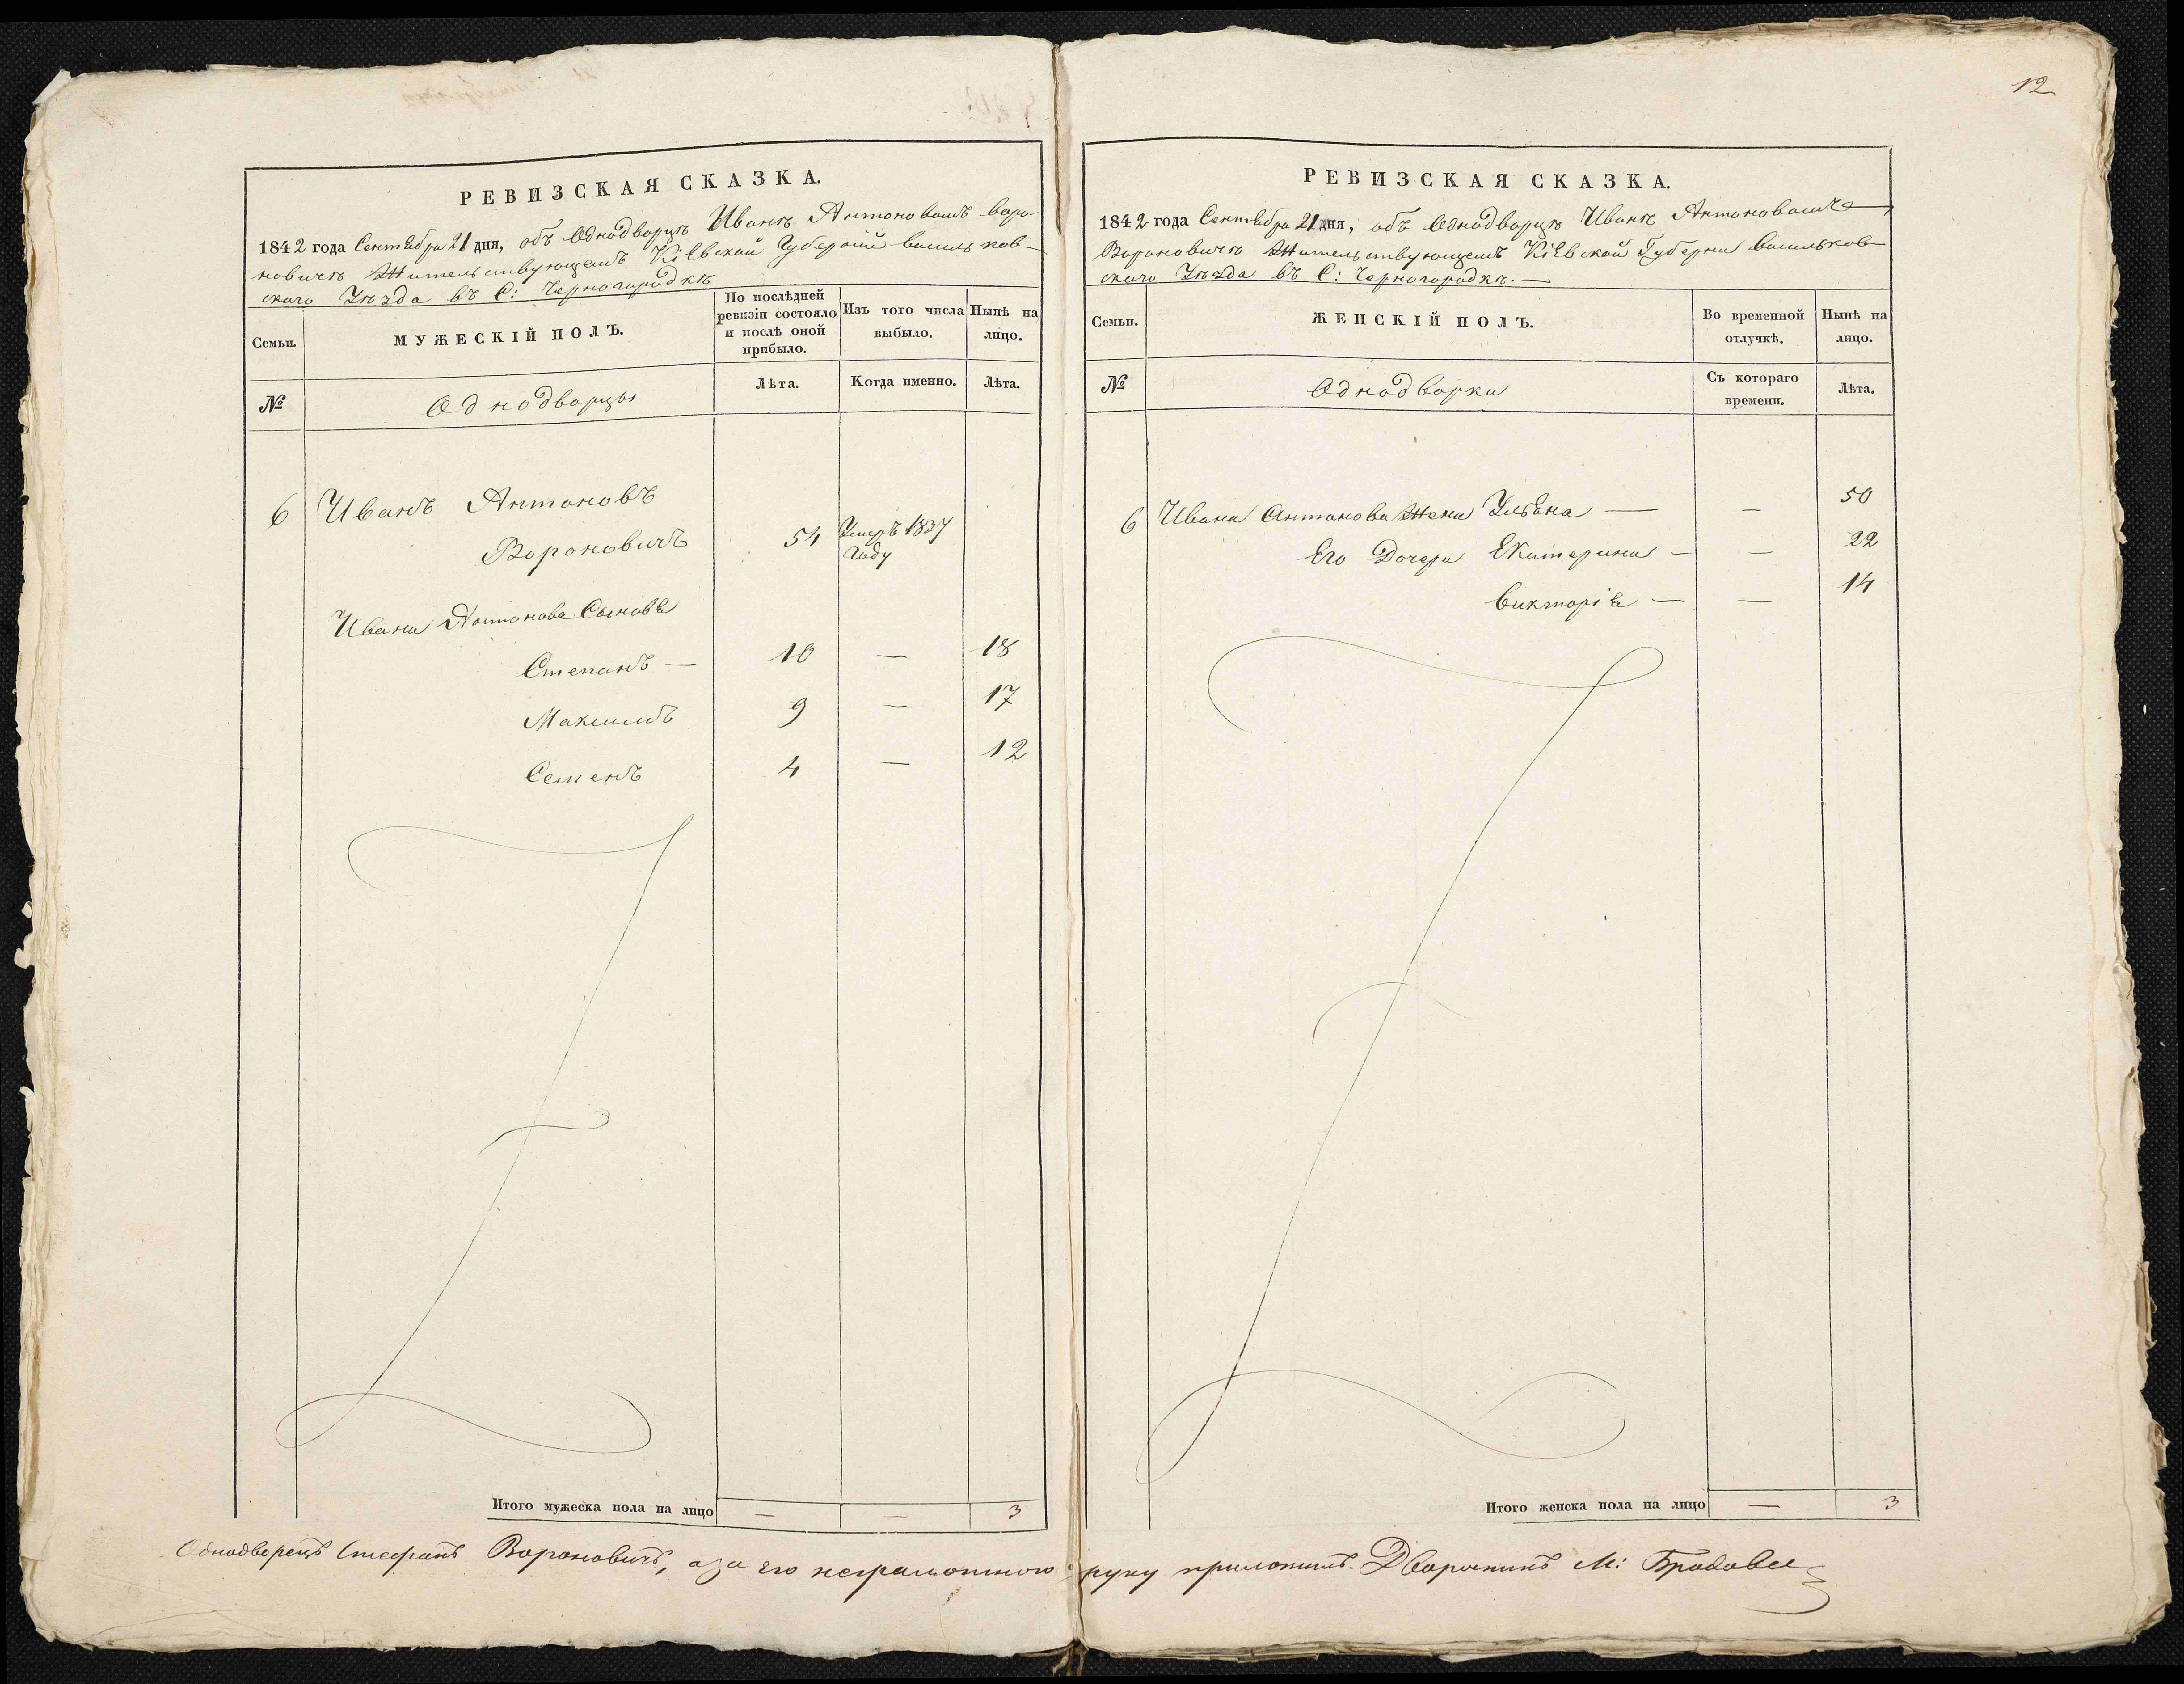 12
РЕВИЗСКАЯ СКАЗКА.
1842 года Сентября 21 дня, объ Однодворцѣ Иванѣ Антоновомъ Воро-
новичѣ Жительствующемъ Кіевской Губерніи Васильков-
скаго Уѣзда въ С: Черногородкѣ
Семьи.
МУЖЕСКІЙ ПОЛЪ.
По послѣдней ревизіи состояло и послѣ оной прибыло.
Изъ того числа выбыло.
Нынѣ на лицо.
№
Однодворцы
Лѣта.
Когда именно.
Лѣта.
6 Иванъ Антоновъ
Вороновичъ 54 Умеръ 1837
Году
Ивана Антонова Сыновья
Степанъ — 10 — 18
Максимъ 9 — 17
Семенъ 4 — 12
Итого мужеска пола на лицо — — 3
РЕВИЗСКАЯ СКАЗКА.
1842 года Сентября 21 дня, объ Однодворцѣ Иванѣ Антоновомъ
Вороновичѣ Жительствующемъ Кіевской Губерніи Васильков-
скаго Уѣзда въ С: Черногородкѣ. —
Семьи.
ЖЕНСКІЙ ПОЛЪ.
Во временной отлучкѣ.
Нынѣ на лицо.
№
Однодворки
Съ котораго времени.
Лѣта.
6 Ивана Антонова Жена Ульяна — — 50
Его Дочери Екатерина — — 22
Викторія — — 14
Итого женска пола на лицо — 3
Однодворецъ Стефанъ Вороновичъ, а за его неграмотного руку приложилъ. Дворянинъ М: